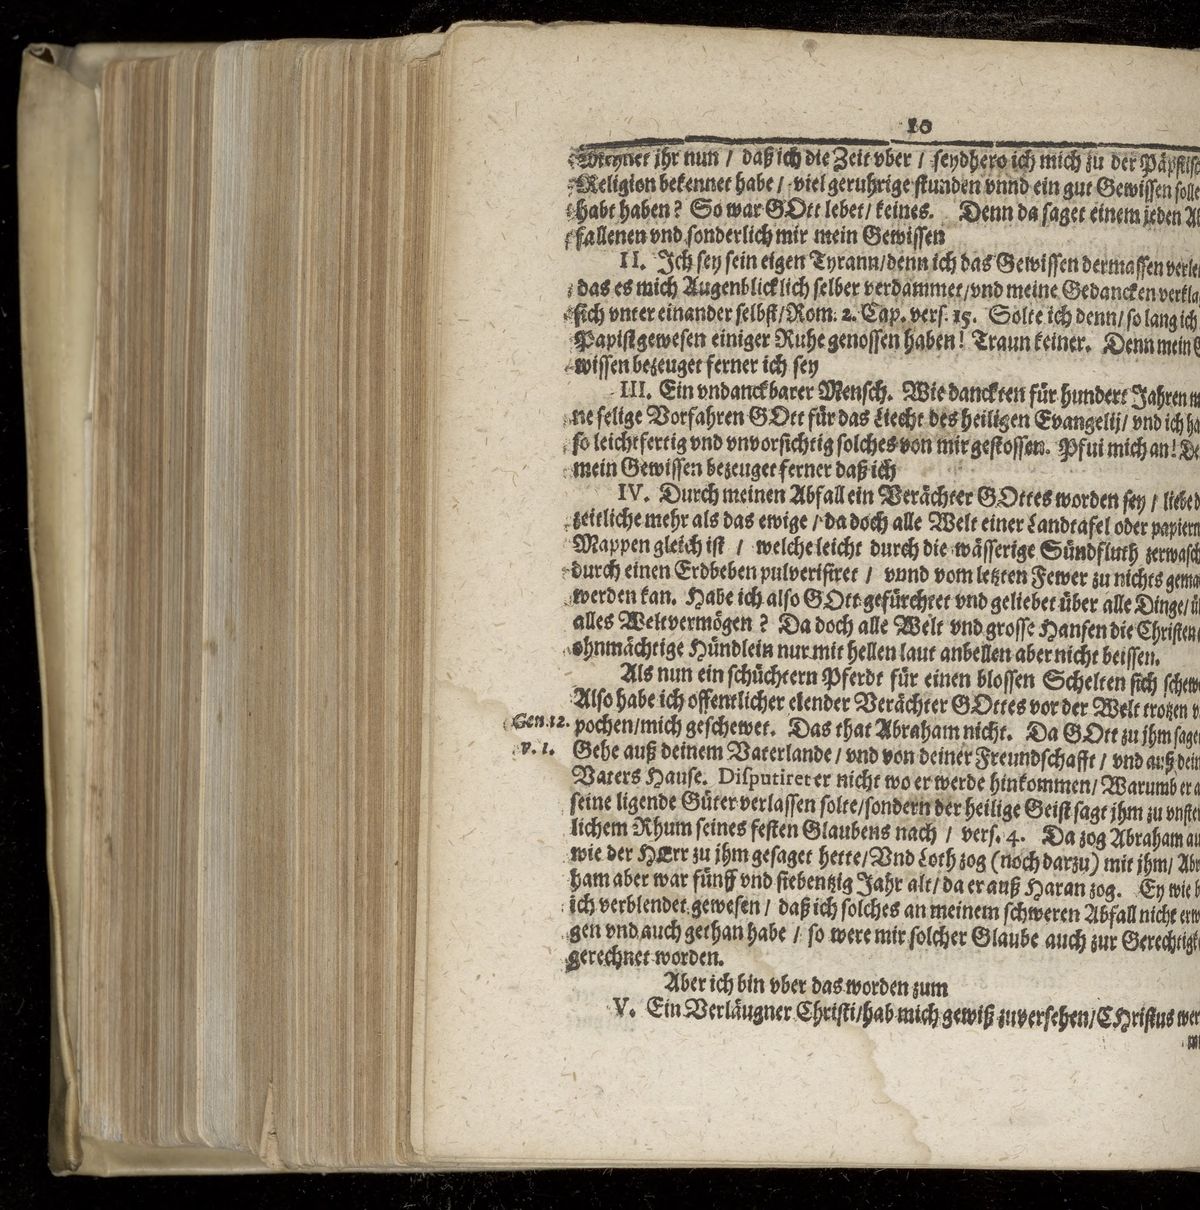 10
Meynet jhr nun / daß ich die Zeit vber / seydhero ich mich zu der Päpstisc
Religion bekennet habe / viel geruhrige stunden vnnd ein gut Gewissen solle
habt haben? So war GOtt lebet / keines. Denn da saget einem jeden Ab
fallenen vnd sonderlich mir mein Gewissen
II. Ich sey sein eigen Tyrann/denn ich das Gewissen dermassen verle
das es mich Augenblicklich selber verdammet/vnd meine Gedancken verkla
sich vnter einander selbst/Rom. 2. Cap. vers. 15. Solte ich denn/ so lang ich
Papist gewesen einiger Ruhe genossen haben! Traun keiner. Denn mein G
wissen bezeuget ferner ich sey
III. Ein vndanckbarer Mensch. Wie danckten für hundert Jahren m
ne selige Vorfahren GOtt für das Liecht des heiligen Evangelij/ vnd ich ha
so leichtfertig vnd vnvorsichtig solches von mir gestossen. Pfui mich an! De
mein Gewissen bezeuget ferner daß ich
IV. Durch meinen Abfall ein Verächter GOttes worden sey / liebe d
zeitliche mehr als das ewige / da doch alle Welt einer Landtafel oder papiern
Mappen gleich ist / welche leicht durch die wässerige Sündfluth zerwasch
durch einen Erdbeben pulverisiret / vnnd vom letzten Fewer zu nichts gema
werden kan. Habe ich also GOtt gefürchtet vnd geliebet über alle Dinge/ ü
alles Weltvermögen? Da doch alle Welt vnd grosse Hansen die Christen
ohnmächtige Hündlein nur mit hellen laut anbellen aber nicht beissen.
Als nun ein schüchtern Pferdt für einen blossen Schelten sich schew
Also habe ich offentlicher elender Verächter GOttes vor der Welt trotzen v
Gen. 12. pochen/mich geschewet. Das that Abraham nicht. Da GOtt zu jhm sage
v. 1. Gehe auß deinem Vaterlande / vnd von deiner Freundschafft / vnd auß dein
Vaters Hause. Disputiret er nicht wo er werde hinkommen/ Warumb er a
seine ligende Güter verlassen solte/sondern der heilige Geist sagt jhm zu vnste
lichem Rhum seines festen Glaubens nach / vers. 4. Da zog Abraham au
wie der HErr zu jhm gesaget hette/Vnd Loth zog (noch darzu) mit jhm/ Abr
ham aber war fünff vnd siebentzig Jahr alt/ da er auß Haran zog. Ey wie b
ich verblendet gewesen / daß ich solches an meinem schweren Abfall nicht erw
gen vnd auch gethan habe / so were mir solcher Glaube auch zur Gerechtigk
gerechnet worden.
Aber ich bin vber das worden zum
V. Ein Verläugner Christi/hab mich gewiß zuversehen/CHristus wer